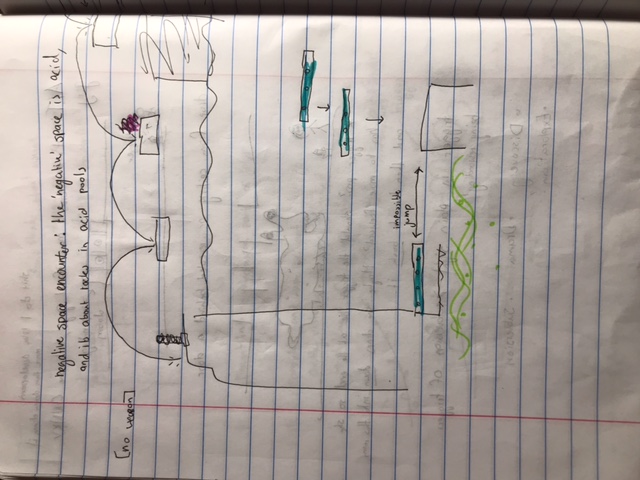 negative space encounter: the 'negativ' space is acid,
and its about rocks in acid pools
[no weapon]
impossible
jump